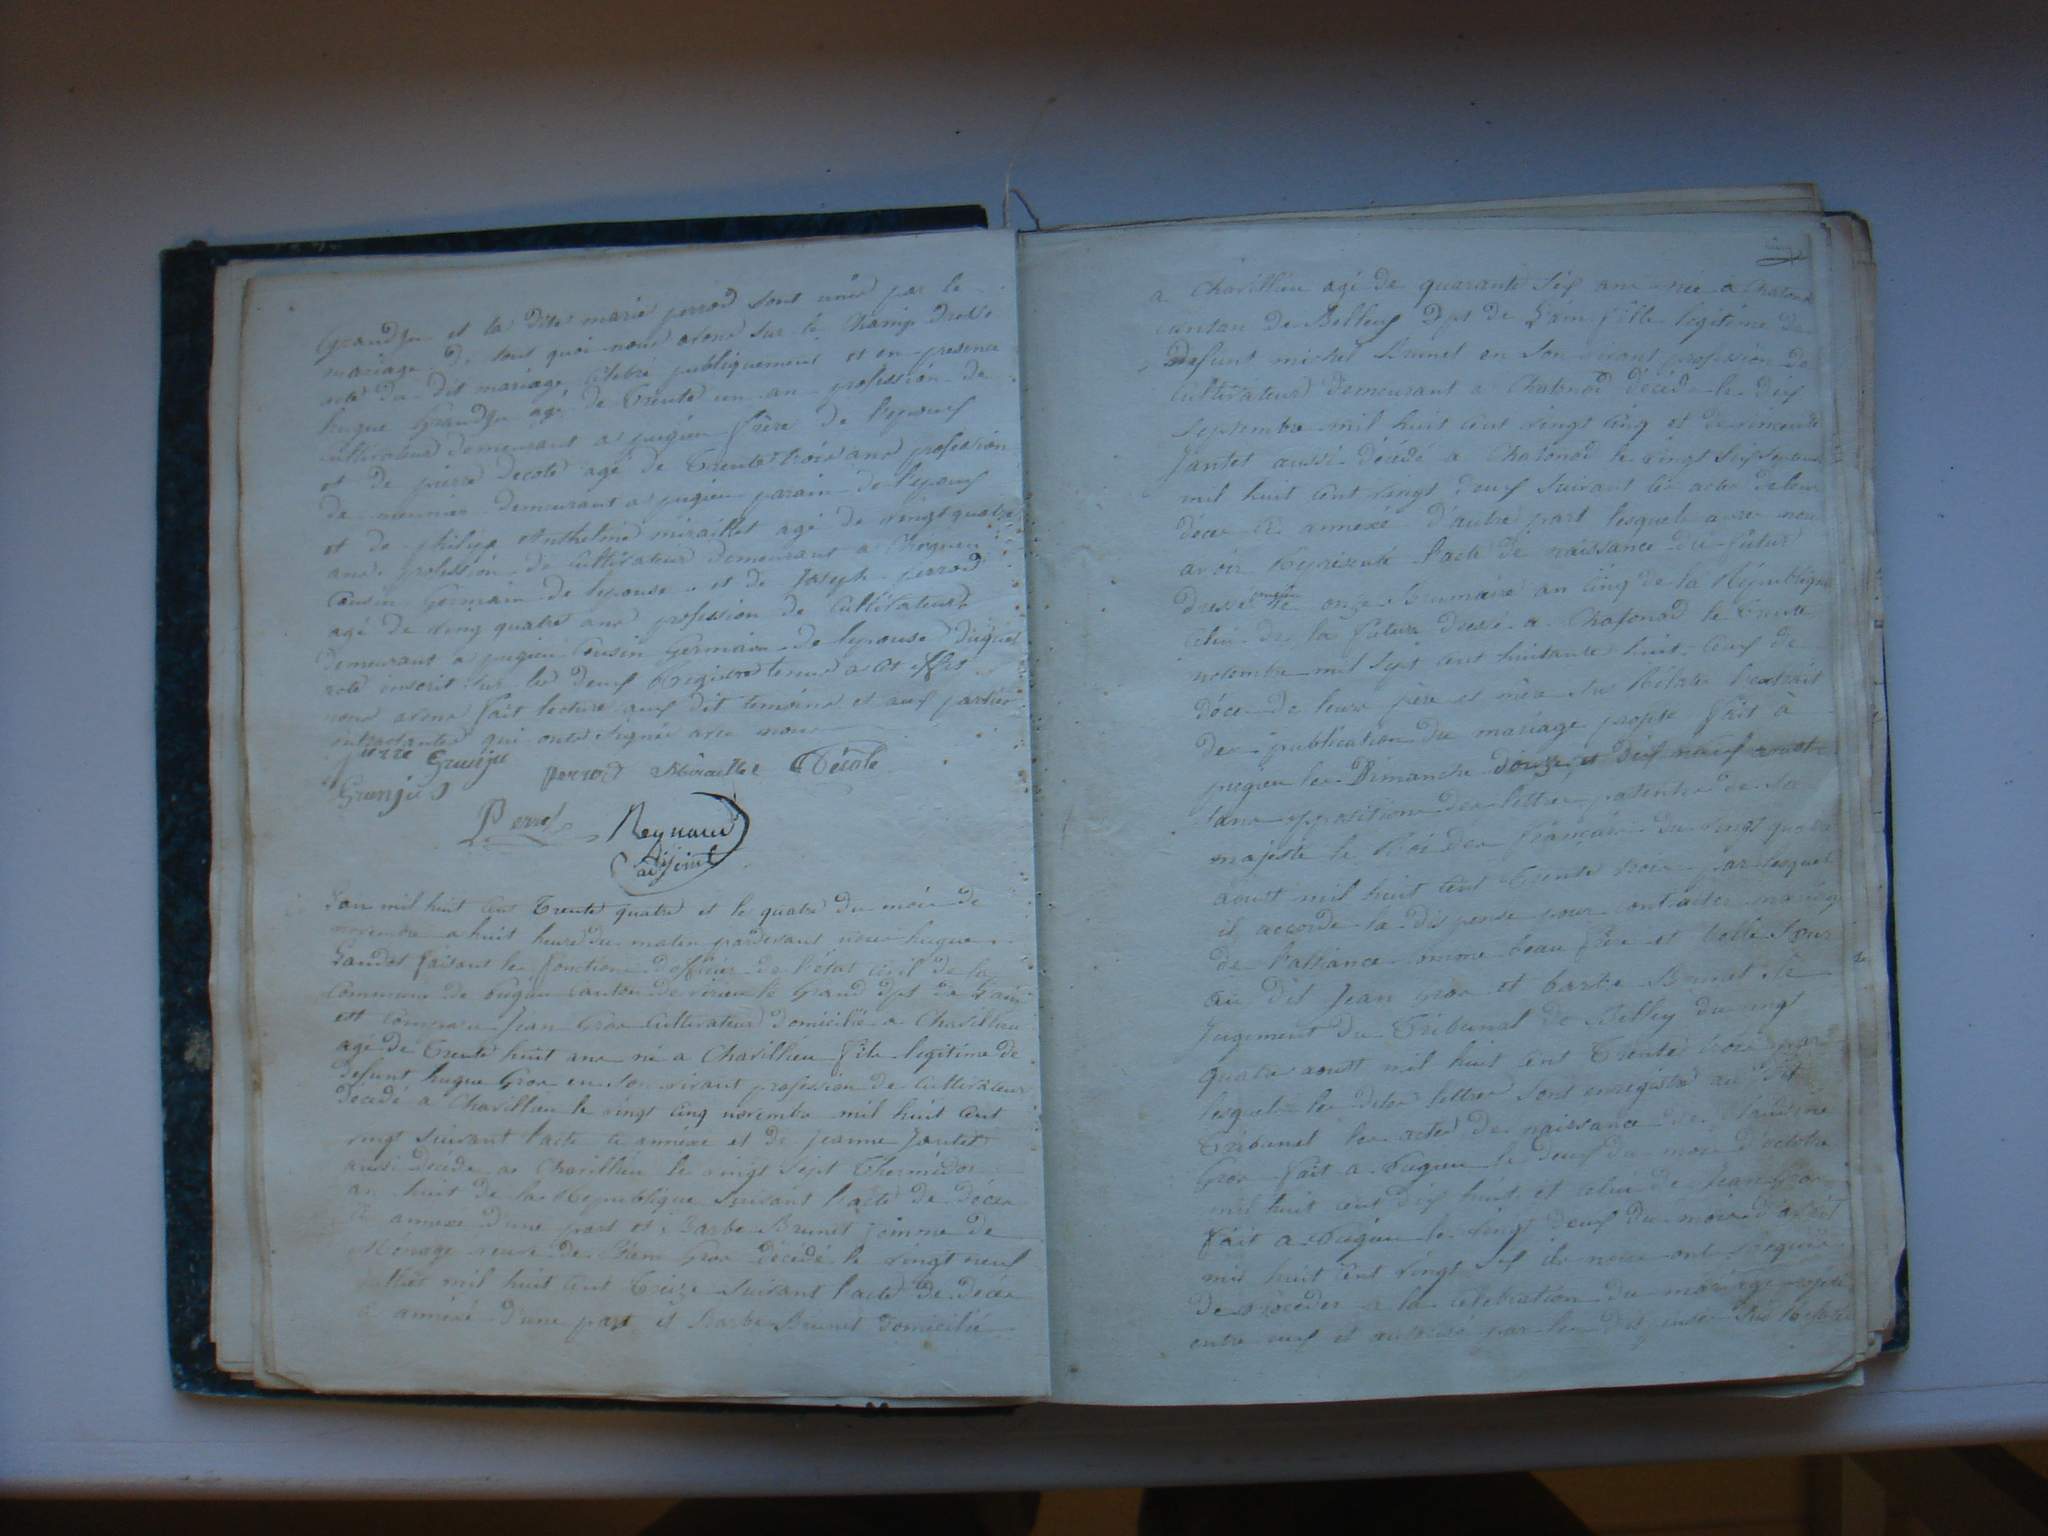 Grandju et la dite marie perrod sont unis par le
mariage. De tout quoi nous avons sur le Champ dressé
acte du dit mariage célébré publiquement et en presence
hugue Grandju agé de Trente un an profession de
cultivateur demeurant a pugieu frère de l'epoux
et de pierre Decote agé de Trente trois ans profession
de meunier demeurant a pugieu parain de l'epoux
et de philipe Anthelme miraillet agé de vingt quatre
ans profession de Cultivateur demeurant a
Cousin Germain de lepouse et de Joseph perrod
agé de vingt quatre ans profession de Cultivateur
demeurant a pugieu Cousin Germain de lepouse
inscrit sur les deux Registres tenus a cet effet
nous avons fait lecture aux dit temoins et aux parties
qui onts signés avec nous
pierre Grusiju perrod Miraillet Décote
Grunju
Perrod Reynaud
adjoint
Lan mil huit cent Trente quatre et le quatre du mois de
novembre a huit heure du matin pardevant nous hugue
Gaudet faisant les fonctions d'officier de l'état Civil de la
Commune de Pugieu canton de virieu le Grand dpt de L'ain
est Comparu Jean Gros Cultivateur domicilié a Chavillieu
agé de Trente huit ans né a Chavillieu fils legitime de
defunt hugue Gros en son vivant profession de Cultivateur
décédé a Chavillieu le vingt cinq novembre mil huit cent
vingt suivant l'acte ci annéxé et de jeanne Jantet
aussi décédé a Chavillieu le vingt sept Thermidor
an huit de la République suivant l'acte de décès
ci annexé d'une part et Barbe Brunet femme de
Ménage veuve de Gros décédé le vingt neuf
mil huit cent Treize suivant l'acte de décès
ci annéxé d'une part et Barbe Brunet Domicilié
a Chavillieu agé de quarante six ans née a Chatonod
canton de Belley Dpt de L'ain fille legitime de
Defunt michel Brunet en son vivant profession de
Cultivateur demeurant a Chatonod décédé le dix
septembre mil huit cent vingt cinq et de
Jantet aussi décédé a Chatonod le vingt six
mil huit cent vingt deux suivant les actes de leur
décès ci annexé d'autre part lesquels avec nous
avoir Représenté l'acte de naissance du futur
dressé le onze Brumaire an cinq de la République
celui de la future dressé a Chatonod le Trente
novembre mil sept cent huitante huit ceux de
décès de leurs père et mère l'extrait
des publication du mariage projeté fait à
pugieu les Dimanche douze et dix neuf
sans opposition des lettres patentes de sa
majesté le Roi des français du vingt quatre
aoust mil huit cent Trente trois par lesquel
il accorde la dispense pour contracter mariage
de l'alliance comme beau frère et belle sœur
au dit Jean Gros et barbe Brunet le
Jugement du Tribunal de Belley du vingt
quatre aoust mil huit cent Trente trois par
lesquels les dites lettres sont enregistré au dit
Tribunal les actes de naissance de Claudine
Gros fait a Pugieu le deux du mois d'octobre
mil huit cent dix huit et celui de Jean Gros
fait a Pugieu le vingt deux du mois d'avril
mil huit cent vingt six ils nous ont requis
De procéder a la célébration du mariage projeté
entre eux et autorisé par les